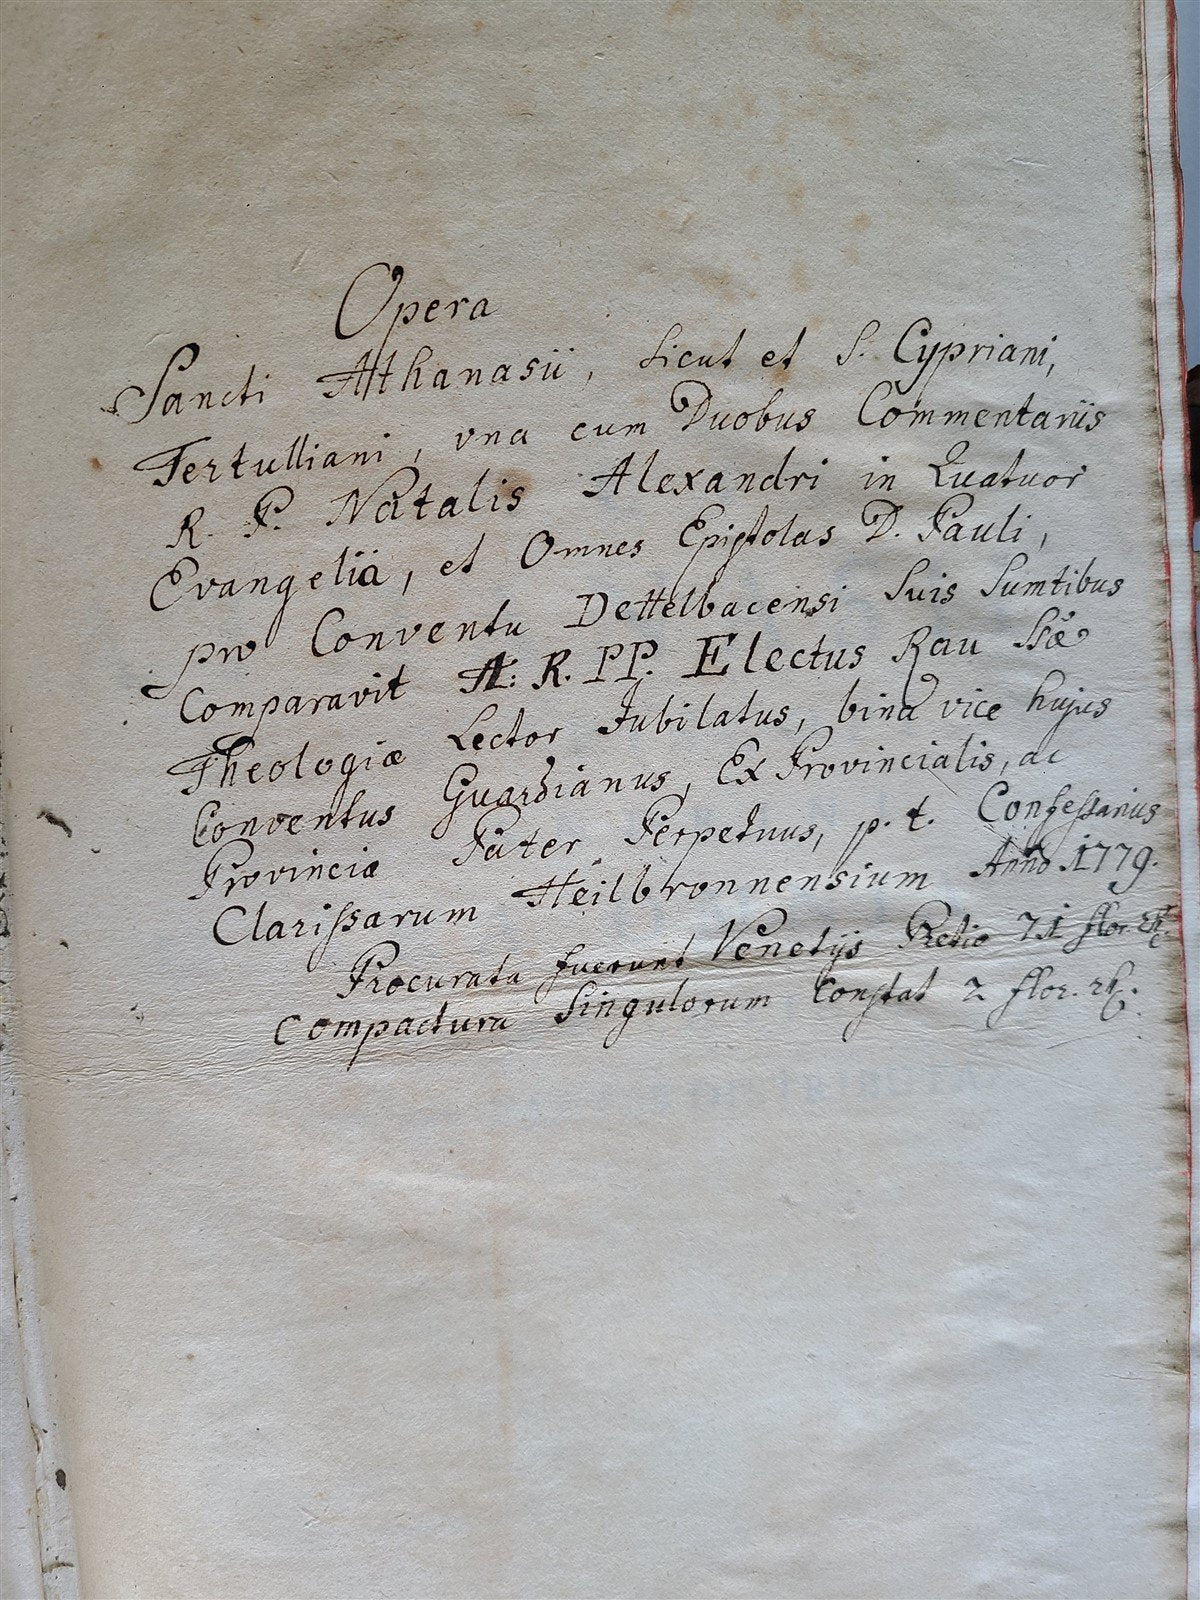 Opera
Sancti Athanasii, sicut et S. Cypriani,
Tertulliani, vna cum Duobus Commentariis
R. P. Natalis Alexandri in Quatuor
Evangelia, et Omnes Epistolas D. Pauli,
pro Conventu Dettelbacensi Suis Sumtibus
Comparavit A: R. PP. Electus Rau SSæ
Theologiæ Lector Jubilatus, bina vice hujus
Conventus Guardianus, Ex Provincialis, ac
Provinciæ Pater Perpetuus, p. t. Confessarius
Clarissarum Heilbronnensium Anno 1779.
Procurata fuerunt Venetijs Pretio 71 flor.
Compactura Singulorum Constat 2 flor.